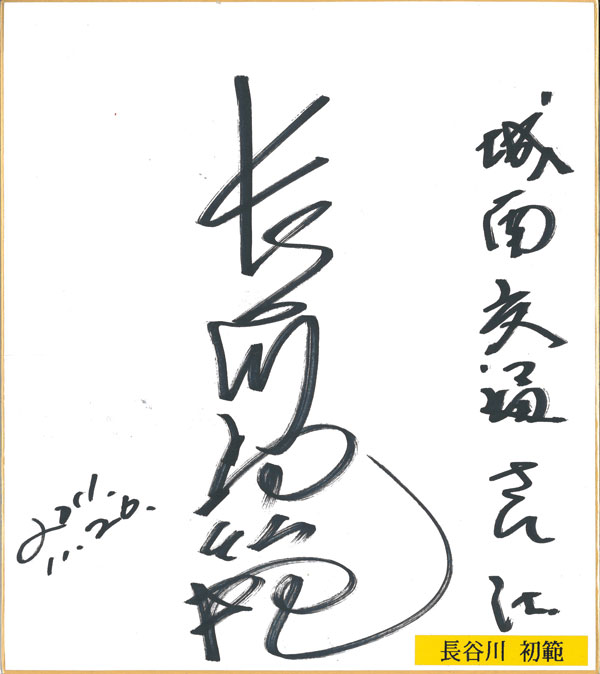 城南交通さん江
長谷川初範
2011.
11.26.
長谷川 初範